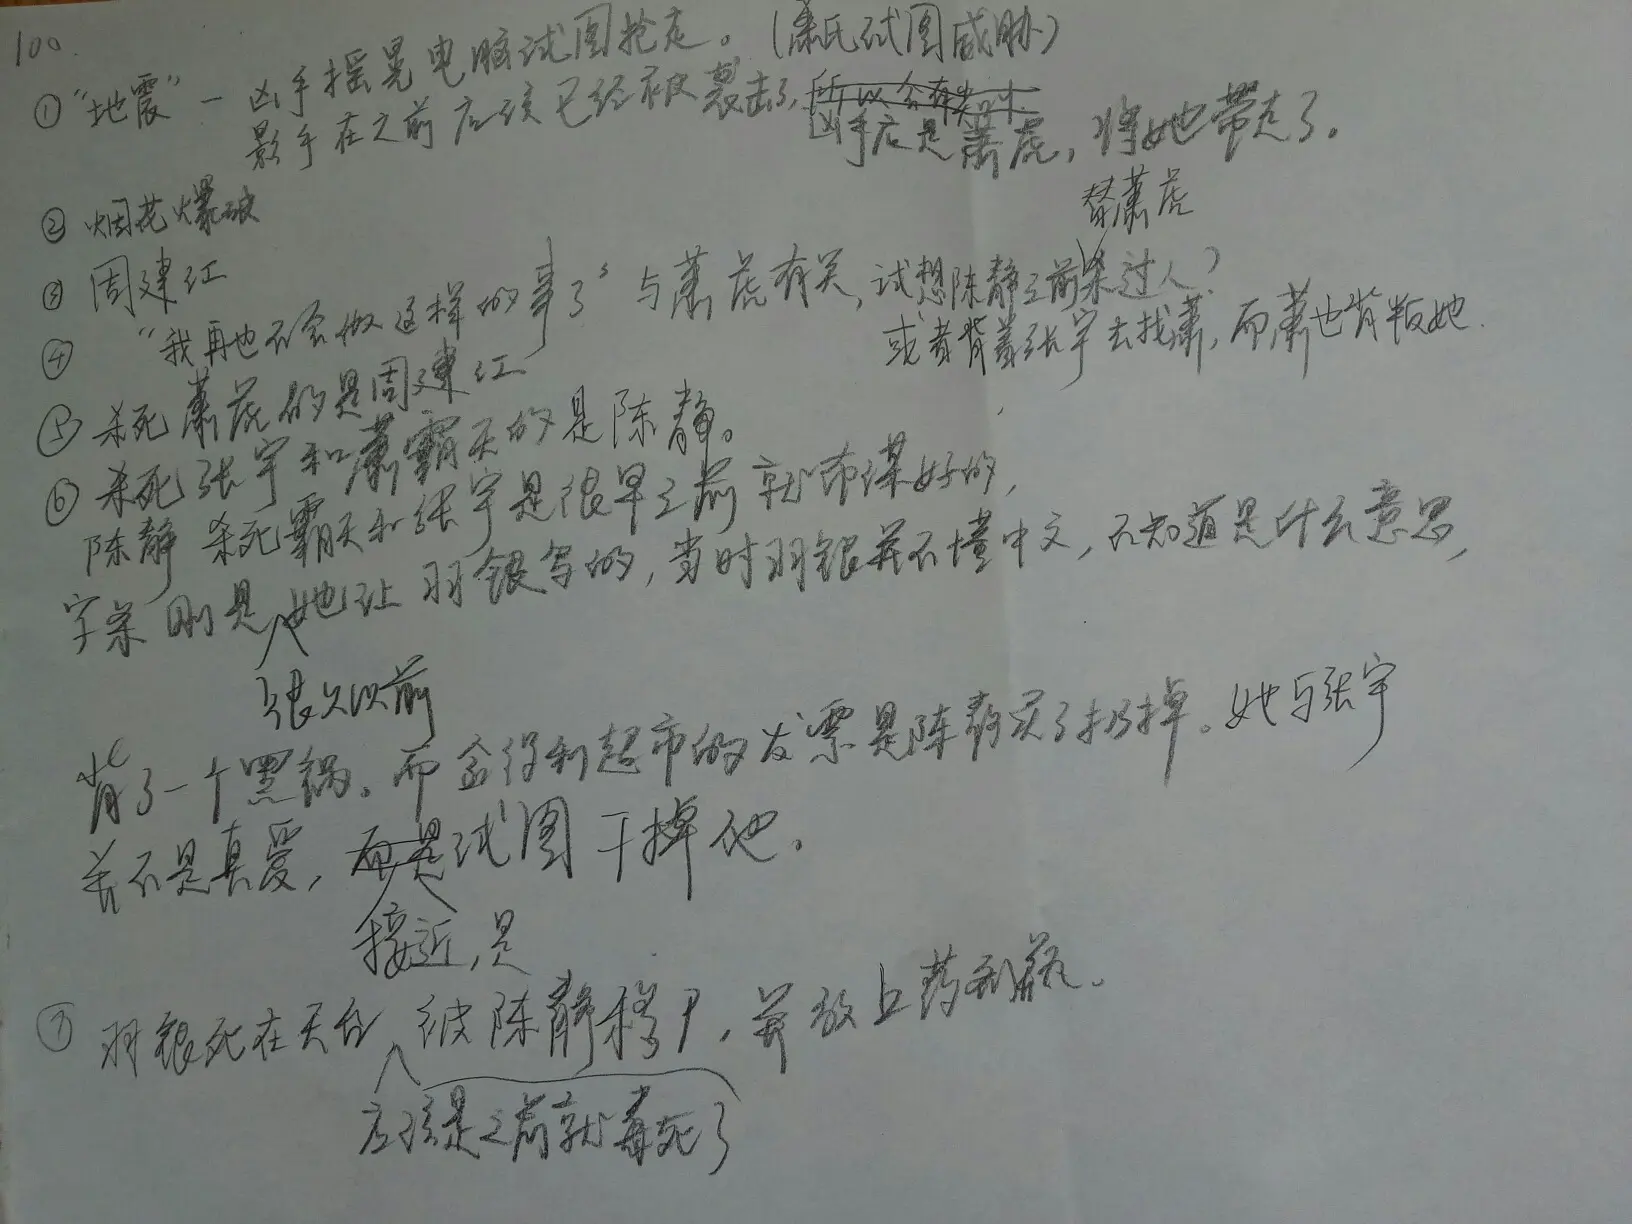 100.
①“地震”－凶手摇晃电脑试图抢走。(萧氏试图威胁)
影手在之前应该已经被袭击了,所以会有
凶手应是萧虎,将她带走了。
②烟花爆破
替萧虎
③周建江
④“我再也不会做这样的事了”与萧虎有关,试想陈静之前杀过人?
或者背着张宇去找萧,而萧也背叛她.
⑤杀死萧虎的是周建江
⑥杀死张宇和萧霸天的是陈静。
陈静杀死霸天和张宇是很早之前就布谋好的,
字条则是她让羽银写的,当时羽银并不懂中文,不知道是什么意思,
很久以前
背了一个黑锅。而金得利超市的发票是陈静买了扔掉。她与张宇
并不是真爱,而是试图干掉他.
接近,是
⑦羽银死在天台被陈静移尸,并放上药剂瓶。
应该是之前就毒死了